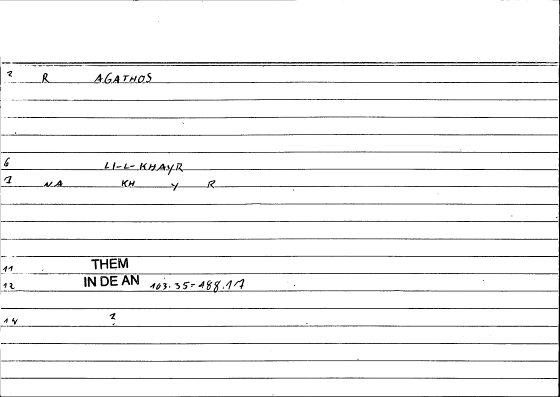 2 R AGATHOS
6 LI-L-KHAYR
7 NA KH Y R
11 THEM
12 IN DE AN 103.35=488.17
14 ?